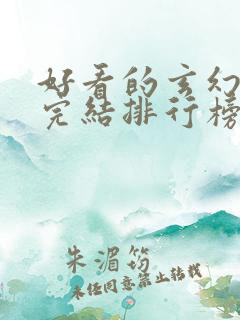 好看的玄幻
完结排行榜
朱湄筠
未经同意禁止转载